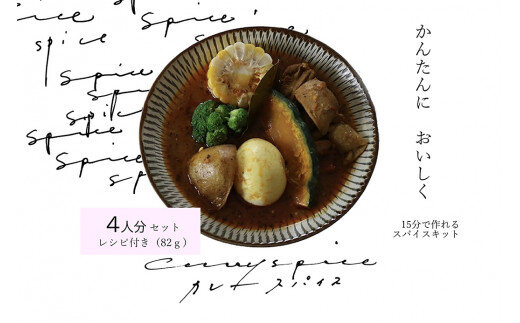 spice
spice
spice
spice
spice
spice
spice
spice
かんたんに おいしく
15分で作れる
スパイスキット
4人分セット
レシピ付き（82g）
Curry spice
カレー スパイス